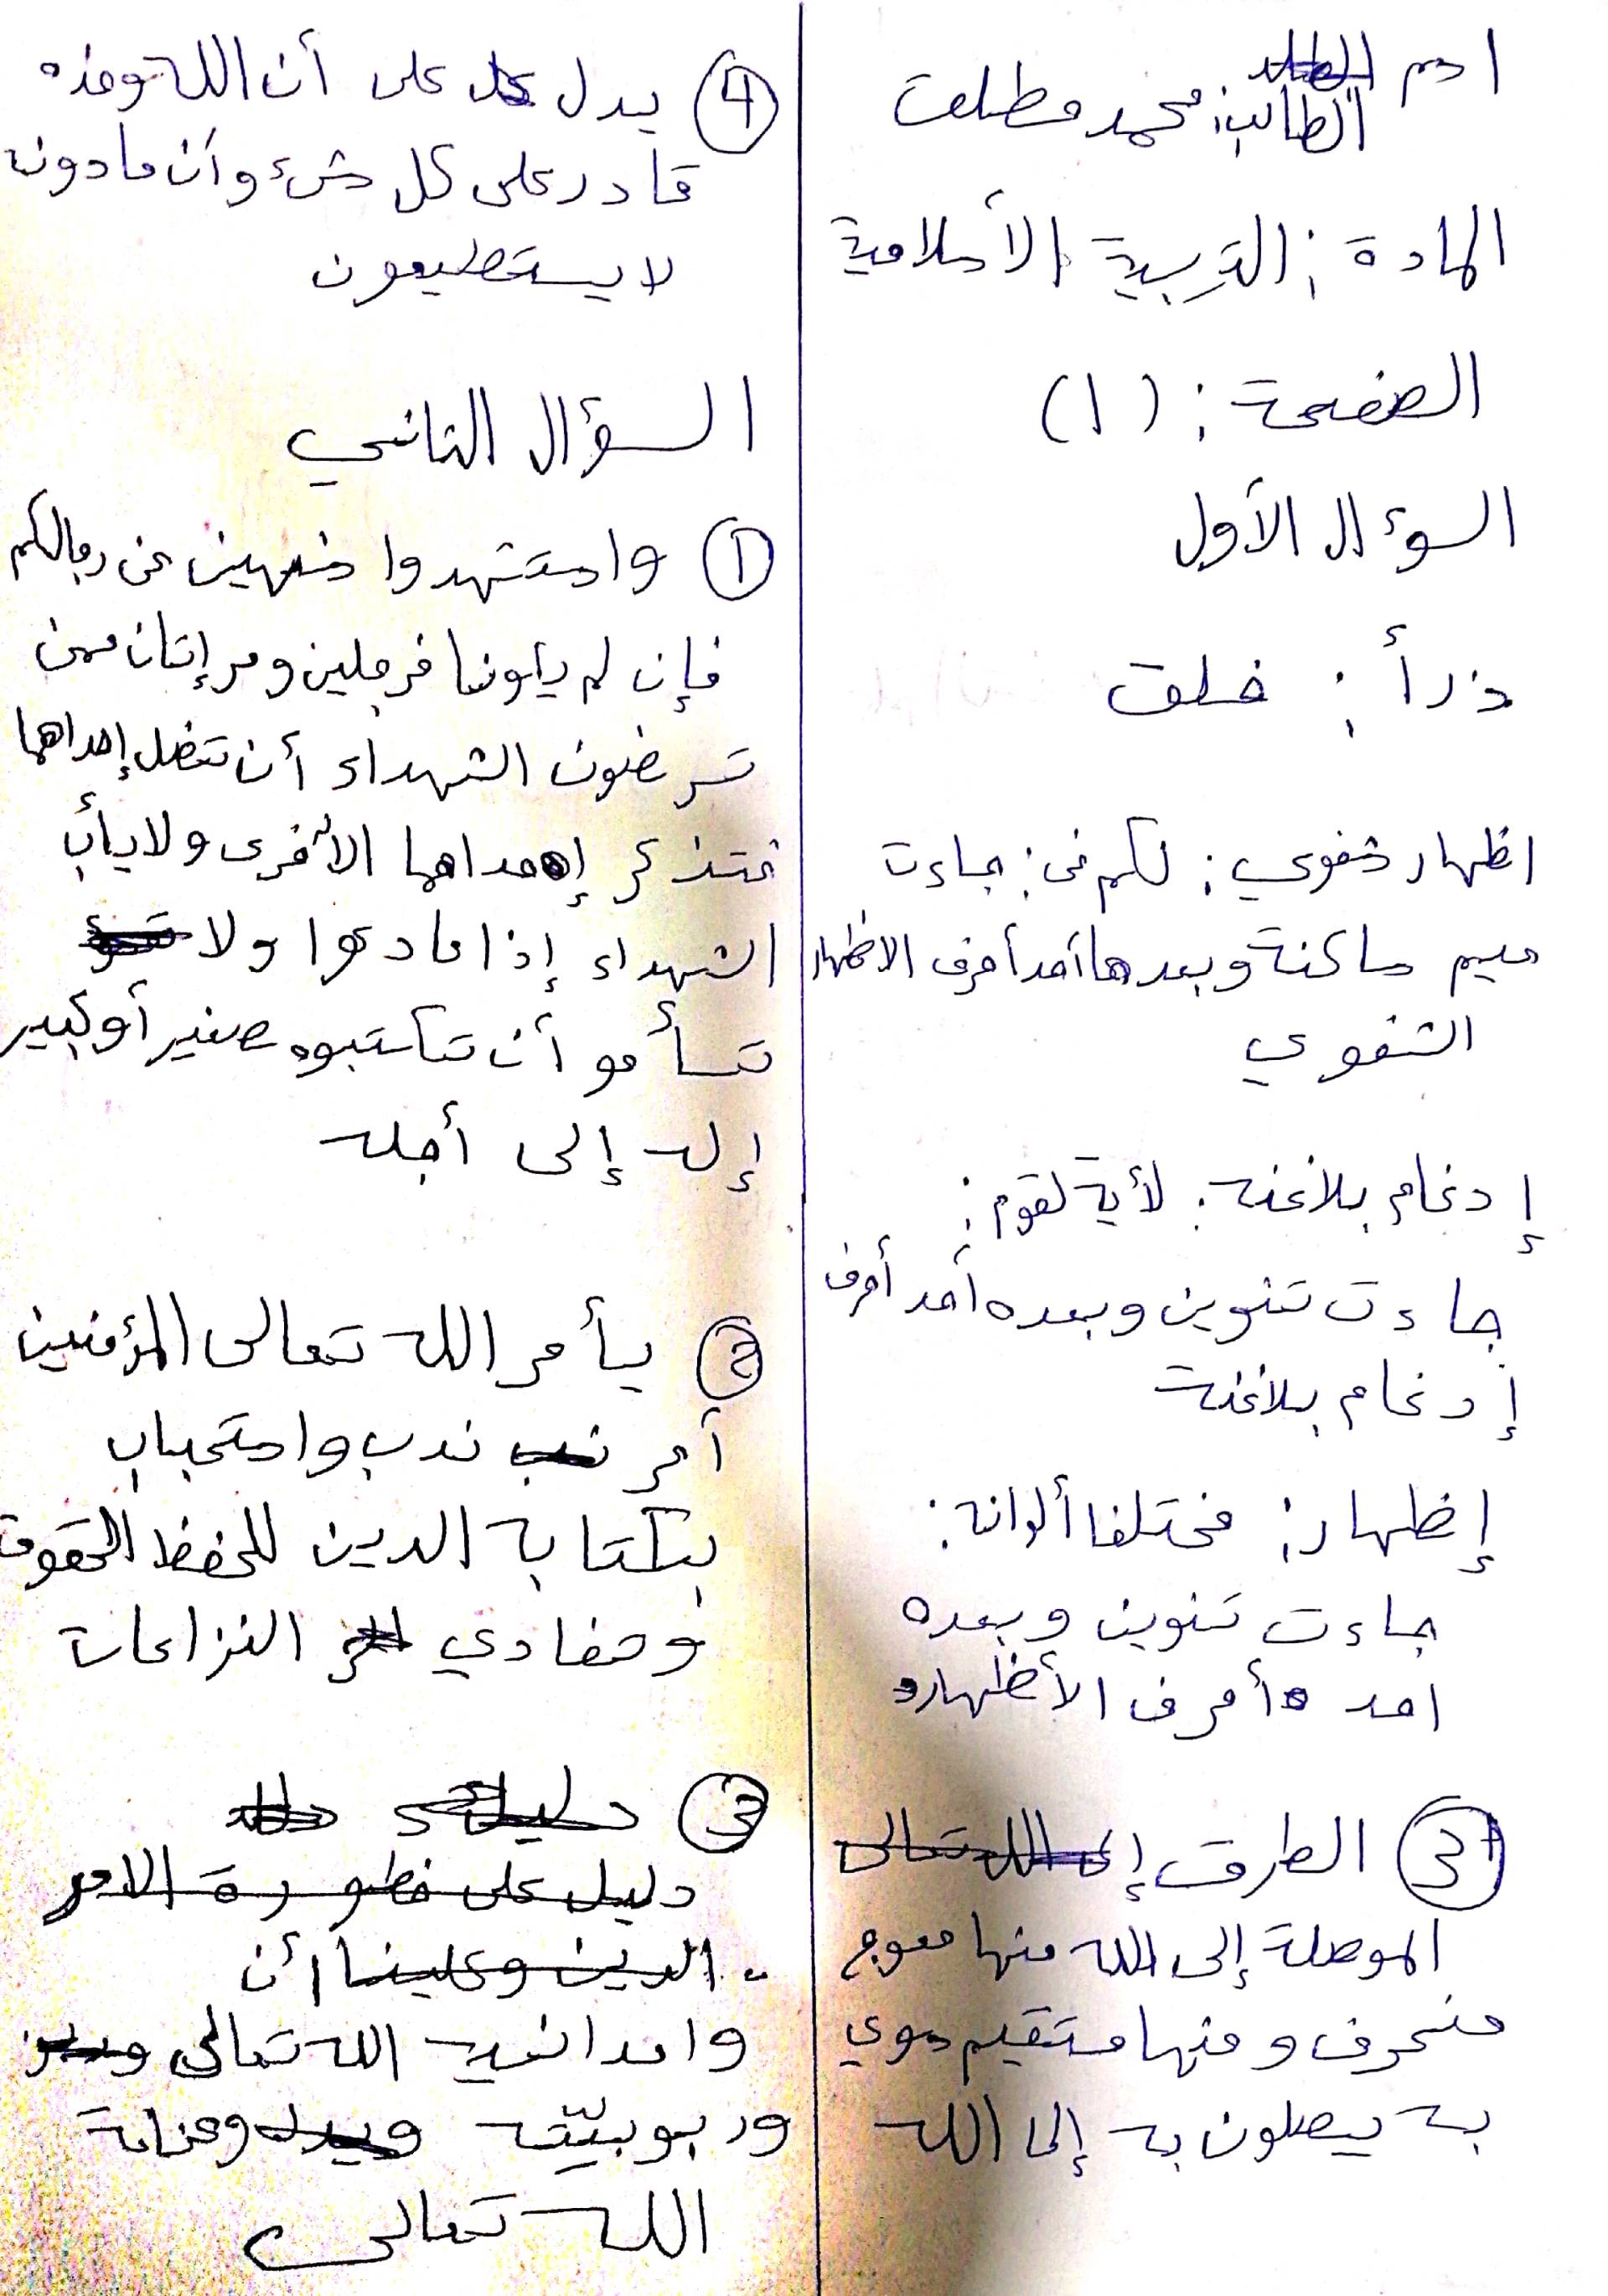 اسم
الطالب: محمد مطلق
المادة: التربية الأسلامية
الصفحة: (١)
السوءال الأول
ذرأ: خلق
اظهار شفوي: لكم في: جاءت
ميم ساكنة وبعدها أحد أحرف الاظهار
الشفوي
إدغام بلاغنه: لأية لقوم:
جاءت تنوين وبعده أحد أحرف
إدغام بلاغنة
إظهار: مختلفا ألوانه:
جاءت تنوين وبعده
احد أحرف الأظهار
3 الطرق إلى الله تعالى
الموصلة إلى الله منها معوج
منحرف و منها مستقيم سوي
به يصلون به إلى الله
4 يدل على أن الله وحده
قادر على كل شيء وأن مادونه
لا يستطيعون
السؤال الثاني
1 واستشهدوا من رجالكم
فإن لم يكونا فرجلين ومرإتان ممن
ترضون الشهداء أن تضل إحداهما
فتذكر إحداهما الأخرى ولايأب
الشهداء إذا مادعوا ولا
تسأمو أن تكتبوه صغير أو كبير
إله إلى أجله
2 يأمر الله تعالى المؤمنين
أمر ندب واستحباب
بكتابه الدين للحفظ الحقوق
وتفادي النزاعات
3
دليل على خطورة الامر
الدين وعلينا أن
واحدانيه الله تعالى
وربوبيته وعزامة
الله تعالى